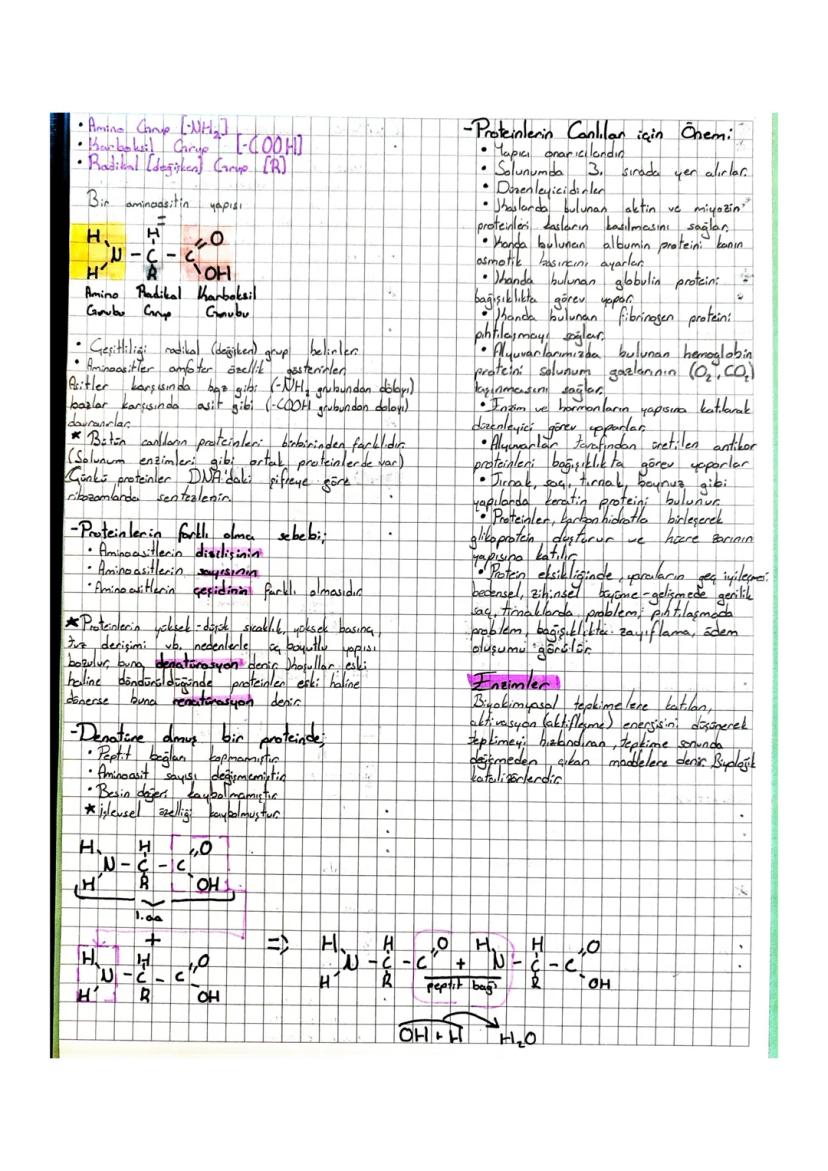 • Amino Grup [-NH₂]
• Karboksil Grup [-COOH]
• Radikal [değişken] Grup [R]
Bir aminoasitin yapısı
H H O
N - C - C
H R OH
Amino Radikal Karboksil
Grubu Grup Grubu
• Çeşitliliği radikal (değişken) grup belirler.
• Aminoasitler amfoter özellik gösterirler.
Asitler karşısında baz gibi (-NH₂ grubundan dolayı)
bazlar karşısında asit gibi (-COOH grubundan dolayı)
davranırlar.
* Bütün canlıların proteinleri birbirinden farklıdır.
(Solunum enzimleri gibi ortak proteinlerde var)
Çünkü proteinler DNA'daki şifreye göre
ribozomlarda sentezlenir.
-Proteinlerin farklı olma sebebi;
• Aminoasitlerin dizilişinin
• Aminoasitlerin sayısının
• Aminoasitlerin çeşidinin farklı olmasıdır
* Proteinlerin yüksek-düşük sıcaklık, yüksek basınç,
tuz derişimi vb. nedenlerle üç boyutlu yapısı
bozulur, buna denatürasyon denir. Koşullar eski
haline döndürüldüğünde proteinler eski haline
dönerse buna renatürasyon denir.
-Denatüre olmuş bir proteinde;
• Peptit bağları kopmamıştır
• Aminoasit sayısı değişmemiştir
• Besin değeri kaybolmamıştır
* İşlevsel özelliği kaybolmuştur
H H O
N - C - C
H R OH
1. aa
+
H H O
N - C - C
H R OH
=> H H O H H O
N - C - C + N - C - C
H R peptit bağı R OH
OH + H H₂O
-Proteinlerin Canlılar için Önemi:
• Yapıcı onarıcılardır.
• Solunumda 3. sırada yer alırlar.
• Düzenleyicidirler
• Kaslarda bulunan aktin ve miyozin
proteinleri kasların kasılmasını sağlar.
• Kanda bulunan albumin proteini kanın
osmotik basıncını ayarlar.
• Kanda bulunan globulin proteini
bağışıklıkta görev yapar.
• Kanda bulunan fibrinojen proteini
pıhtılaşmayı sağlar.
• Alyuvarlarımızda bulunan hemoglobin
proteini solunum gazlarının (O₂, CO₂)
taşınmasını sağlar.
• Enzim ve hormonların yapısına katılarak
düzenleyici görev yaparlar.
• Alyuvarlar tarafından üretilen antikor
proteinleri bağışıklıkta görev yaparlar
• Tırnak, saç, tırnak, boynuz gibi
yapılarda keratin proteini bulunur.
• Proteinler, karbonhidratla birleşerek
glikoprotein oluşturur ve hücre zarının
yapısına katılır.
• Protein eksikliğinde, yaraların geç iyileşmesi
bedensel, zihinsel büyüme-gelişmede gerilik
saç, tırnaklarda problem, pıhtılaşmada
problem, bağışıklıkta zayıflama, ödem
oluşumu görülür.
Enzimler
Biyokimyasal tepkimelere katılan,
aktivasyon (aktifleşme) energisini düşünerek
tepkimeyi hızlandıran, tepkime sonunda
değişmeden çıkan maddelere denir. Biyolojik
katalizörlerdir.